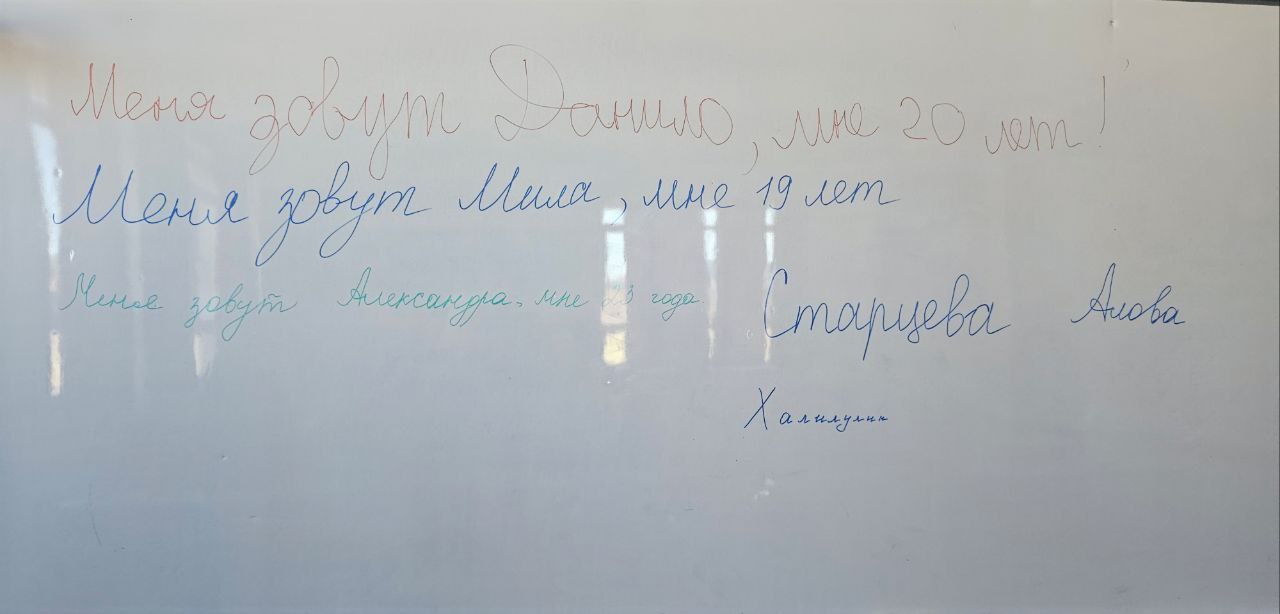 Меня зовут Данило, мне 20 лет!
Меня зовут Мила, мне 19 лет
Меня зовут Александра, мне 23 года
Старцева Алова
Халилулин